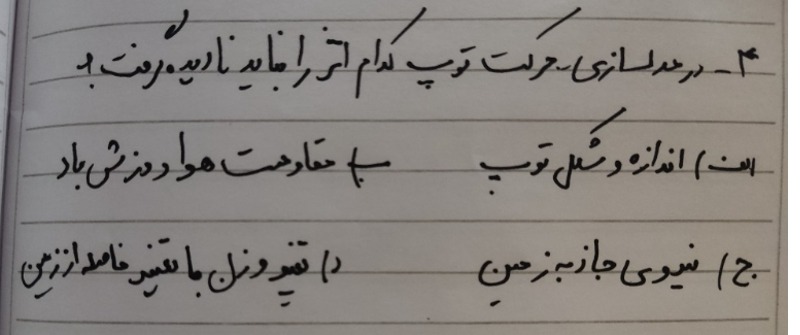 ۴_ در مدلسازی حرکت توپ کدام اثر را نباید نادیده گرفت؟
الف) اندازه و شکل توپ ب) مقاومت هوا و وزش باد
ج) نیروی جاذبه زمین د) تغییر وزن با تغییر فاصله از زمین